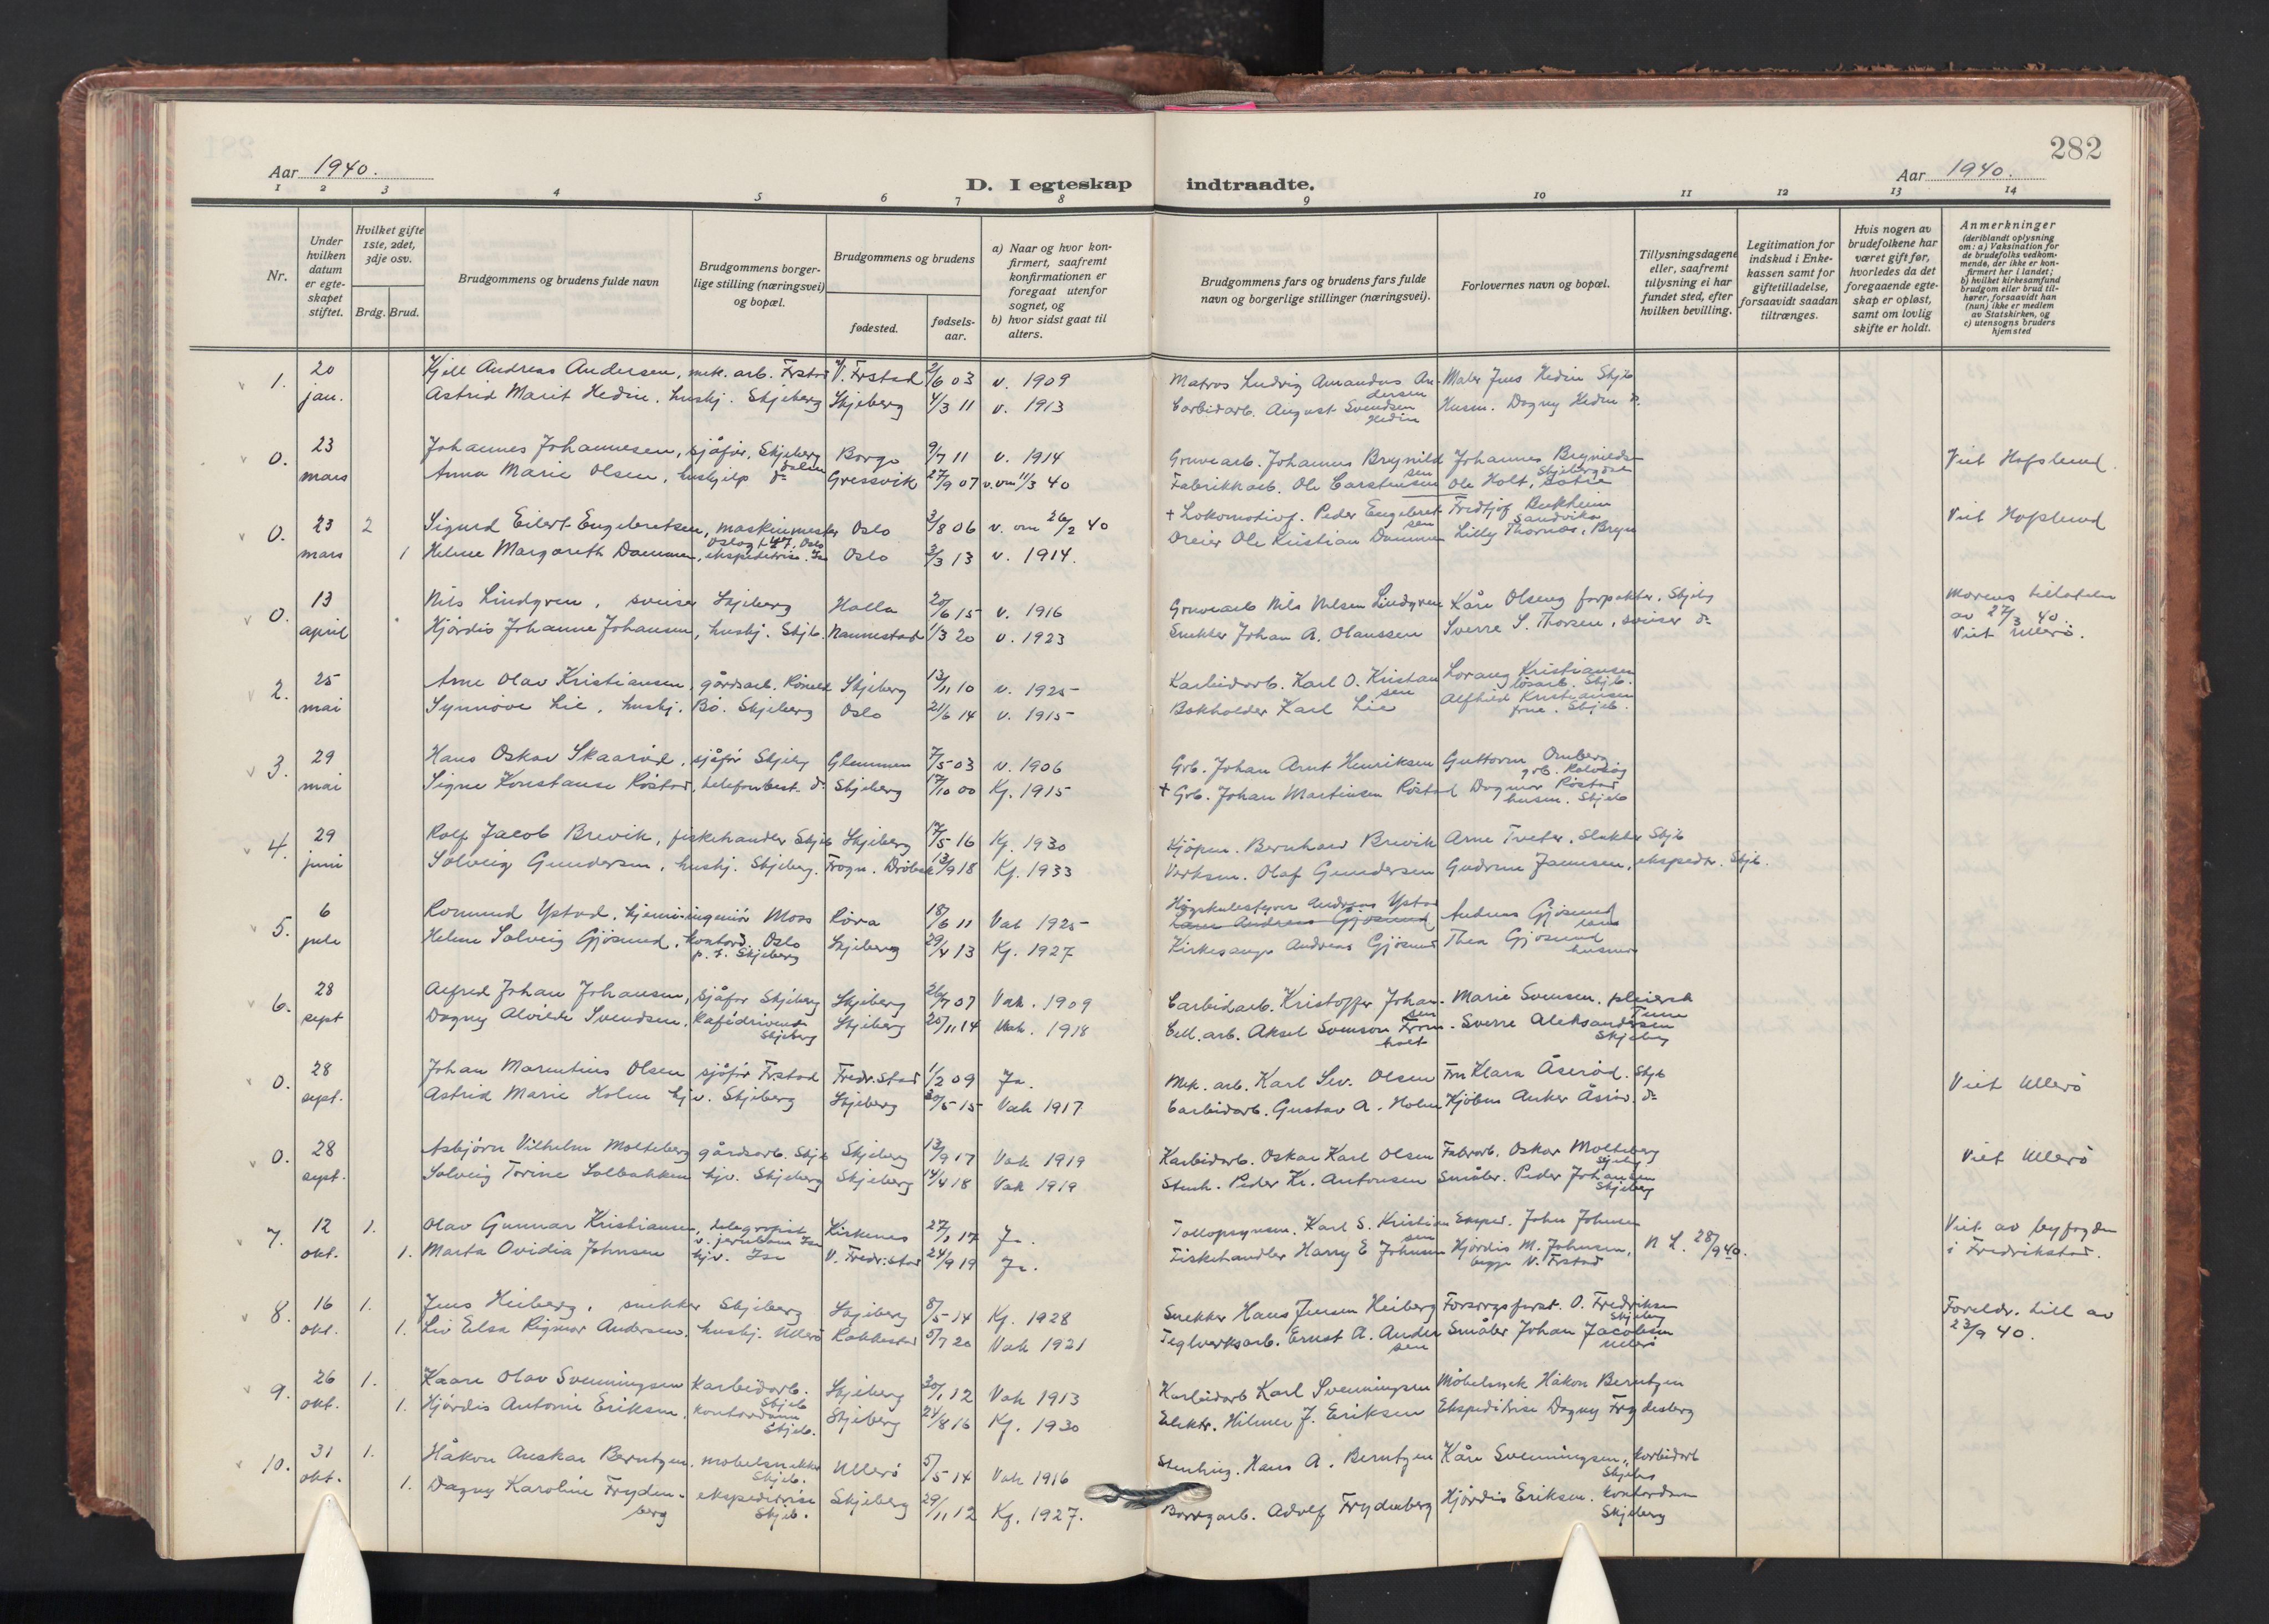 282
Aar 1940.
D. I egteskap indtraadte.
Aar 1940.
1 2 3 4 5 6 7 8 9 10 11 12 13 14
Nr.
Under hvilken datum er egteskapet stiftet.
Hvilket gifte 1ste, 2det, 3dje osv.
Brdg. Brud.
Brudgommens og brudens fulde navn
Brudgommens borgerlige stilling (næringsvei) og bopæl.
Brudgommens og brudens
fødested.
fødselsaar.
a) Naar og hvor konfirmert, saafremt konfirmationen er foregaat utenfor sognet, og
b) hvor sidst gaat til alters.
Brudgommens fars og brudens fars fulde navn og borgerlige stillinger (næringsvei).
Forlovernes navn og bopæl.
Tillysningsdagene eller, saafremt tillysning ei har fundet sted, efter hvilken bevilling.
Legitimation for indskud i Enkekassen samt for giftetilladelse, forsaavidt saadan tiltrænges.
Hvis nogen av brudefolkene har været gift før, hvorledes da det foregaaende egteskap er opløst, samt om lovlig skifte er holdt.
Anmerkninger
(deriblandt oplysning om: a) Vaksination for de brudefolks vedkommende, der ikke er konfirmert her i landet; b) hvilket kirkesamfund brudgom eller brud tilhører, forsaavidt han (hun) ikke er medlem av Statskirken, og c) utensogns bruders hjemsted
1. 20 jan. Kjell Andreas Andersen, mek. arb. Frstad V. Frstad 2/6 03 v. 1909 Matros Ludvig Amandus Andersen Maler Jens Hedin Skjb
Astrid Marit Hedin, hushj. Skjeberg Skjeberg 4/3 11 v. 1913 Carbidarb. August Svendsen Hedin Husm. Dagny Hedin do.
0. 23 mars Johannes Johannesen, sjåfør, Skjeberg Borge 9/7 11 v. 1914 Gruvearb. Johannes Brynildsen Johannes Brynildsen Skjebergdalen Viet Hafslund.
Anna Marie Olsen, hushjelp do Gressvik 27/9 07 v. om 11/3 40 Fabrikkarb. Ole Carstensen Ole Holt,
0. 23 mars 2 Sigurd Eilert Engebretsen, maskinmester Oslo 3/8 06 v. om 26/2 40 + Lokomotivf. Peder Engebretsen Fredtjof Bekkheim Sandvika Viet Hafslund
1 Helene Margareth Dammen, ekspeditrise. Ise Oslo 3/3 13 v. 1914. Dreier Ole Kristian Dammen Lilly Thornæs, Bryn
0. 13 april Nils Lindgren, sveiser Skjeberg Halla 20/6 15 v. 1916 Gruvearb Nils Nilsen Lindgren Kåre Olseng forpakter. Skjebg Morens tillatelse av 27/3 40. Viet Ullerø.
Hjördis Johanne Johansen, hushj. Skjb. Nannestad 1/3 20 v. 1923 Snekker Johan A. Olaussen Sverre S. Thorsen, sveiser do
2. 25 mai Arne Olav Kristiansen, gårdsarb. Skjeberg 13/11 10 v. 1925 Karbidarb. Karl O. Kristansen Lorang Kristiansen løsarb. Skjb.
Synnöve Lie, hushj. Bö. Skjeberg Oslo 21/6 14 v. 1915 Bokholder Karl Lie Alfhild Kristiansen frue. Skjeb.
3. 29 mai Hans Oskar Skaaröd, sjåfør Skjebg Glemmen 7/5 03 v. 1906 Grb. Johan Arnt Henriksen Guttorm Ornberg grb. Rolvsøy
Signe Konstanse Röstad, telefonbest. do Skjeberg 17/10 00 Kg. 1915 + Grb. Johan Martinsen Röstad Dagmar Röstad husm. Skjeb
4. 29 juni Rolf Jacob Brevik, fiskehandler Skjb Skjeberg 17/5 16 Kg. 1930 Kjöpm. Bernhard Brevik Arne Tveter, Slakter Skjb
Solveig Gundersen, hushj. Skjeberg. Frogn. Dröbak 13/9 18 Kg. 1933 Verksm. Olaf Gundersen Gudrun Jamnesen, ekspedtr. Skjb.
5. 6 juli Romund Ystad, kjemi-ingeniör Moss Röra 18/6 11 Vak 1925 Högskulestyrar Andreas Ystad Andreas Gjösund
Lærer Andreas Gjösund
Helene Solveig Gjösund, kontord. Oslo p.t. Skjeberg Skjeberg 29/4 13 Kg. 1927 Kirkesanger Andreas Gjösund Thea Gjösund husmor
6. 28 sept Alfred Johan Johansen, sjåfør Skjeberg Skjeberg 26/7 07 Vak. 1909 Carbidarb. Kristoffer Johansen Marie Svensen. pleierske Tune
Dagny Alvilde Svendsen, kafédrivende Skjeberg Skjeberg 25/11 14 Vak. 1918 Cell. arb. Aksel Svenson Fromholt Sverre Aleksandersen Skjeberg
0. 28 sept. Johan Marentius Olsen sjåför Frstad Fredr.stad 1/2 09 Ja. Mek. arb. Karl Sev. Olsen Fru Klara Åseröd. Skjb Viet Ullerö
Astrid Marie Holm hjv. Skjeberg Skjeberg 20/5 15 Vak 1917 Carbidarb. Gustav A. Holm Kjöbm Anker Åseröd. do
0. 28 sept. Asbjörn Vilhelm Molteberg gårdsarb. Skjb Skjeberg 13/9 17 Vak 1919 Karbidarb. Oskar Karl Olsen Fabrarb. Oskar Molteberg Skjebg Viet Ullerö
Solveig Torine Solbakken hjv. Skjeberg Skjeberg 14/4 18 Vak 1919 Stenh. Peder Kr. Antonsen Småbr. Peder Johansen Skjeberg
7. 12 okt. 1. Olav Gunnar Kristiansen, telegrafist v. jernbanen Ise Kirkenes 27/1 17 Ja. Tollopsynsm. Karl S. Kristiansen Eksped. John Johnsen Viet av byfogden i Fredrikstad.
1. Marta Ovidia Johnsen hjv. Ise V. Fredr.stad 24/9 19 Ja. Fiskehandler Harry E Johnsen Hjördis M. Johnsen, begge V. Frstad N L. 28/9 40.
8. 16 okt. 1. Jens Heiberg, snekker Skjeberg Skjeberg 8/5 14 Kg. 1928 Snekker Hans Jensen Heiberg Forsorgsforst. O. Fredriksen Skjeberg Foreldr. till av 23/9 40.
1. Liv Elsa Rigmor Andersen, hushj. Ullerö Rakkestad 5/7 20 Vak 1921 Teglverksarb. Ernst A. Andersen Småbr Johan Jacobsen Ullerö
9. 26 okt. 1. Kaare Olav Svenningsen Karbidarb. Skjeb Skjeberg 30/1 12 Vak 1913 Karbidarb Karl Svenningsen Möbelsnek Håkon Berntzen
1. Hjördis Antonie Eriksen, kontordame Skjeb. Skjeberg 24/8 16 Kg. 1930 Elektr. Hilmer J. Eriksen Ekspeditrise Dagny Frydenberg
10. 31 okt. 1. Håkon Anskar Berntzen. möbelsnekker Skjeb. Ullerö 5/5 14 Vak 1916 Stenhug. Hans A. Berntzen Kåre Svenningsen, karbidarb Skjeberg
1. Dagny Karoline Frydenberg ekspeditrise Skjeb. Skjeberg 29/11 12 Kg. 1927. Borregarb. Adolf Frydenberg Hjördis Eriksen. kontordam Skjeberg